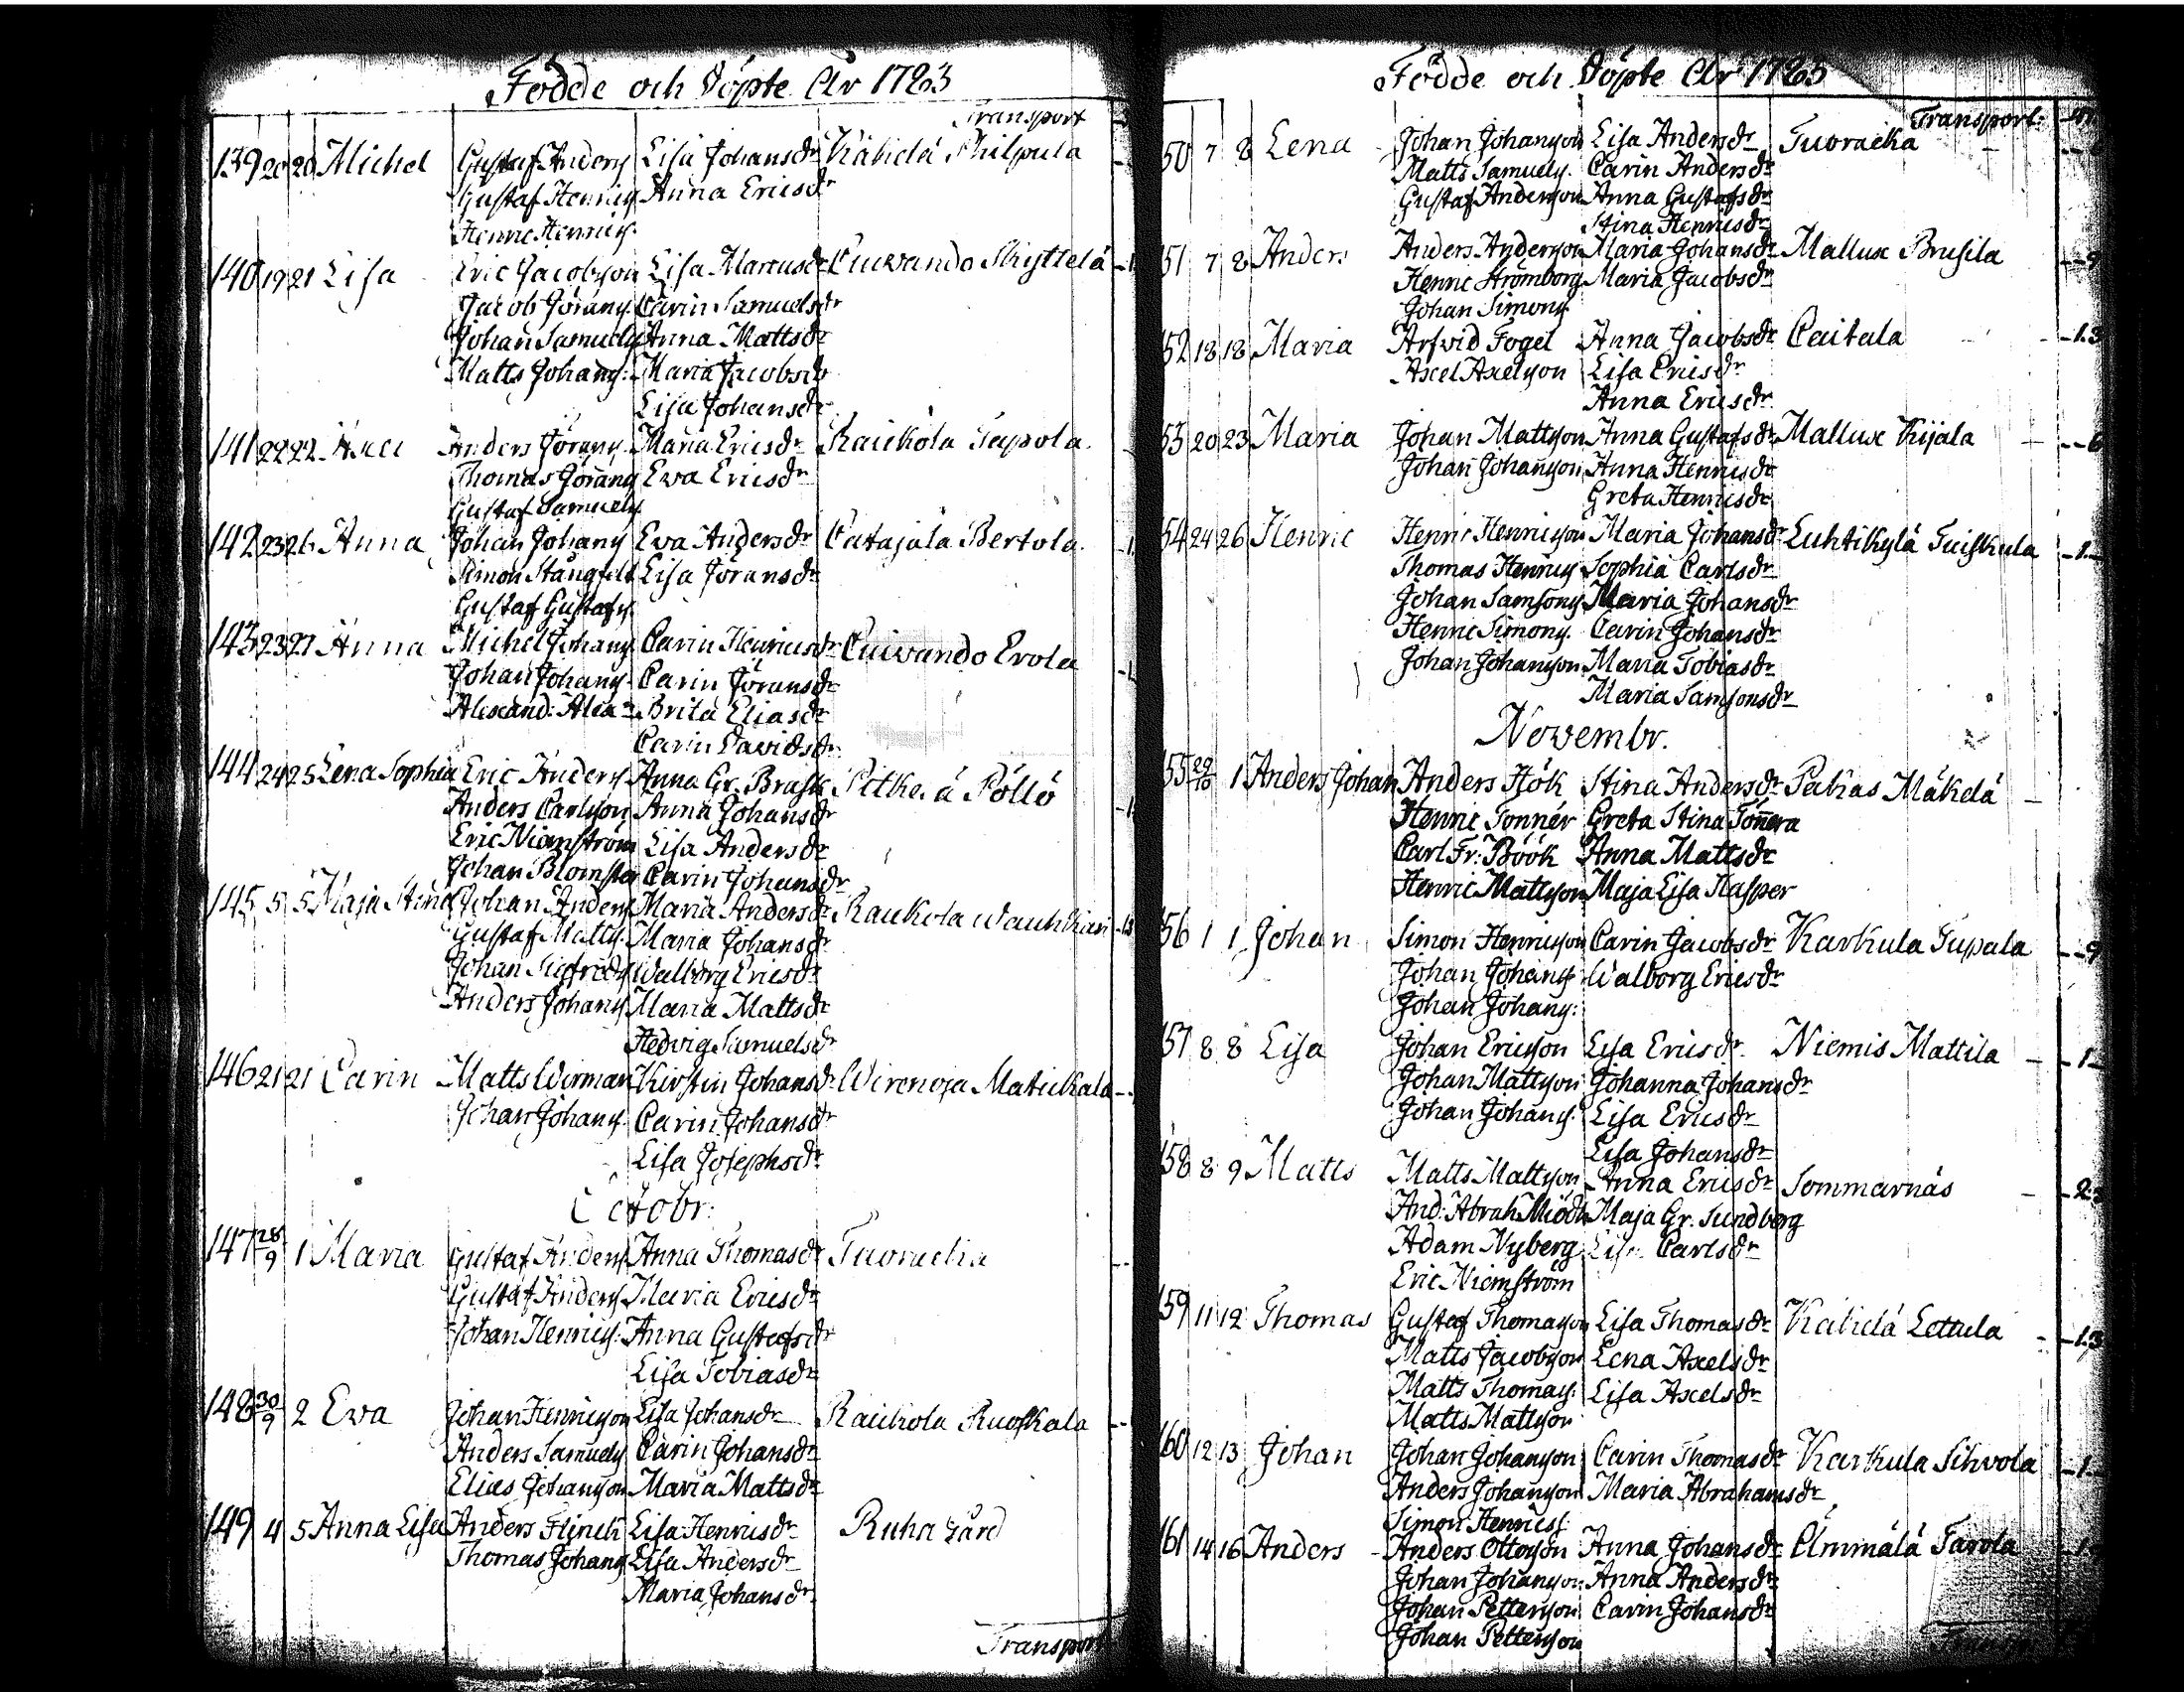 Födde och Döpte Åhr 1783
Transport
139 20 20 Michel Gustaf Anders Lisa Johansdr Kähelä Philpula
Gustaf Henrics Anna Ericsdr
Henric Henrics
140 19 21 Lisa Eric Jacobsson Lisa Marcusdr Cuivando Skyttelä
Jacob Görans Carin Samuelsdr
Johan Samuels Anna Mattsdr
Matts Johans: Maria Jacobsdr
Lisa Johansdr
141 22 22 Anders Görans Maria Ericsdr Raukola Tapola
Thomas Görans Eva Ericsdr
Gustaf Samuels
142 23 26 Anna Johan Johans Eva Andersdr Catajala Bertola
Simon Stångfelt Lisa Göransdr
Gustaf Gustafs
143 23 27 Anna Michel Johans Carin Henricsdr Cuivando Erola
Johan Johans Carin Göransdr
Alexand: Brita Eliasdr
Carin Davidsdr
144 24 25 Lena Sophia Eric Anders Anna Gr. Brask Pöllö
Anders Carlsson Anna Johansdr
Eric Niemström Lisa Andersdr
Johan Blomster Carin Johansdr
145 5 5 Maja Stina Johan Anders Maria Andersdr Raukola
Gustaf Matts Maria Johansdr
Johan Sigfreds Walborg Ericsdr
Anders Johans Maria Mattsdr
Hedvig Samuelsdr
146 21 21 Carin Matts Wirman Kirstin Johansdr Wirenoja Matickala
Johan Johans Carin Johansdr
Lisa Josephsdr
Octobr:
147 28/9 1 Maria Gustaf Anders Anna Thomasdr
Gustaf Anders Maria Ericsdr
Johan Henrics: Anna Gustafsdr
Lisa Tobiasdr
148 30/9 2 Eva Johan Henricsson Lisa Johansdr Raukola Ruoskala
Anders Samuels Carin Johansdr
Elias Johansson Maria Mattsdr
149 4 5 Anna Lisa Anders Flinck Lisa Henricsdr Ruha gård
Thomas Johans Lisa Andersdr
Maria Johansdr
Transport
Födde och Döpte Åhr 1783
Transport
50 7 8 Lena Johan Johansson Lisa Andersdr Tuoracka
Matts Samuels. Carin Andersdr
Gustaf Andersson Anna Gustafsdr
Stina Henricsdr
51 7 8 Anders Anders Andersson Maria Johansdr Mallux Brusila 9
Henric Strömborg Maria Jacobsdr
Johan Simons
52 18 18 Maria Arfvid Fogel Anna Jacobsdr Caitala 13
Axel Axelsson Lisa Ericsdr
Anna Ericsdr
53 20 23 Maria Johan Mattsson Anna Gustafsdr Mallux Kijala 6
Johan Johansson Anna Henricsdr
Greta Henricsdr
54 24 26 Henric Henric Henricsson Maria Johansdr Luhtikylä Tuiskula
Thomas Henrics Sophia Carlsdr
Johan Samsons Maria Johansdr
Henric Simons. Carin Johansdr
Johan Johansson Maria Tobiasdr
Maria Samsonsdr
Novembr.
55 29/10 1 Anders Johan Anders Hök Stina Andersdr Pakas Mäkelä
Henric Tonnér Greta Stina Toñera
Carl Fr: Böök Anna Mattsdr
Henric Mattsson Maja Lisa Hasper
56 1 1 Johan Simon Henricsson Carin Jacobsdr Karkula Tupala 9
Johan Johans Walborg Ericsdr
Johan Johans:
57 8 8 Lisa Johan Ericsson Lisa Ericsdr. Niemis Mattila
Johan Mattsson Johanna Johansdr
Johan Johans: Lisa Ericsdr
Lisa Johansdr
58 8 9 Matts Matts Mattsson Anna Ericsdr Sommarnäs
And: Abrah Maja Gr. Sundberg
Adam Nyberg Lisa Carlsdr
Eric Niemström
59 11 12 Thomas Gustaf Thomasson Lisa Thomasdr Kähelä 13
Matts Jacobsson Lena Axelsdr
Matts Thomas: Lisa Axelsdr
Matts Mattsson
60 12 13 Johan Johan Johansson Carin Thomasdr Karkula Sihvola
Anders Johansson Maria Abrahamsdr
Simon Henrics:
61 14 16 Anders Anders Ottosson Anna Johansdr Ämmälä Tarola
Johan Johansson Anna Andersdr
Johan Pettersson Carin Johansdr
Johan Pettersson